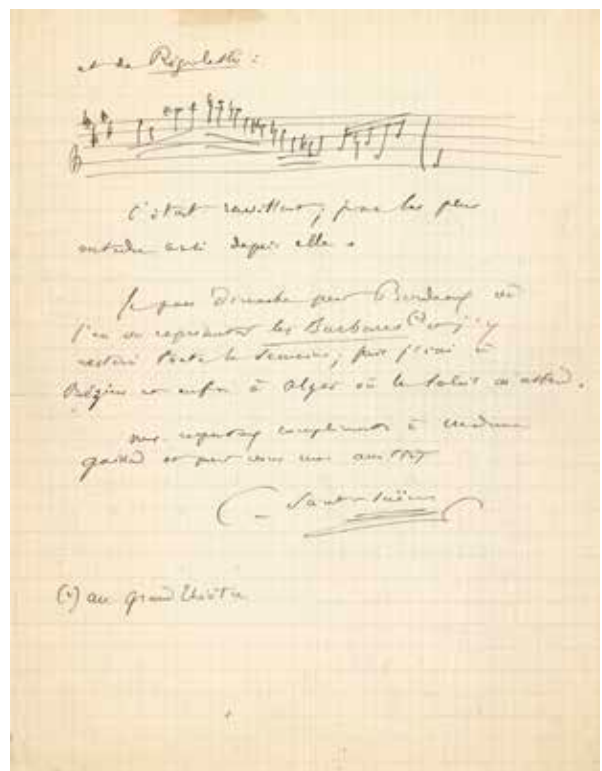 et de Rigoletto :
C'était ravissant ; je ne l'ai plus
entendu ainsi depuis elle.
Je pars Dimanche pour Bordeaux où
l'on va représenter les Barbares (*) et j'y
resterai toute la semaine ; puis j'irai à
Béziers et enfin à Alger où le soleil m'attend.
mes respectueux compliments à madame
et pour vous mes amitiés
C. Saint-Saëns
(*) au grand théâtre